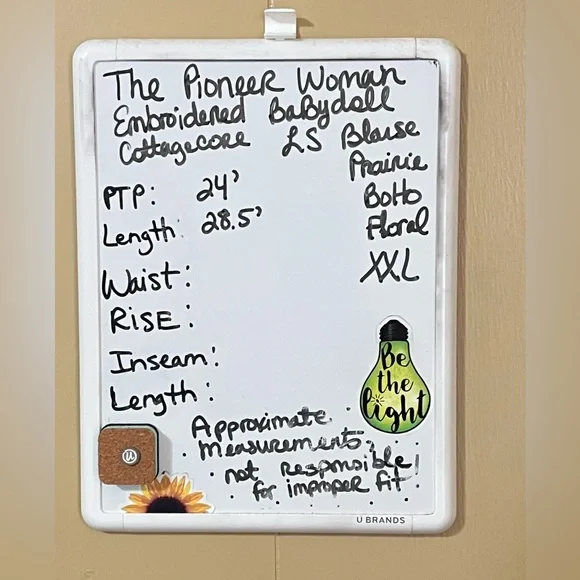 The Pioneer Woman
Embroidered Babydoll
Cottagecore LS Blouse
Prairie
PTP: 24'
BoHo
Length: 28.5'
Floral
Waist:
XXL
RISE:
Inseam:
Length:
Be
the
light
Approximate
Measurements,
not Responsible
for improper fit!
U BRANDS